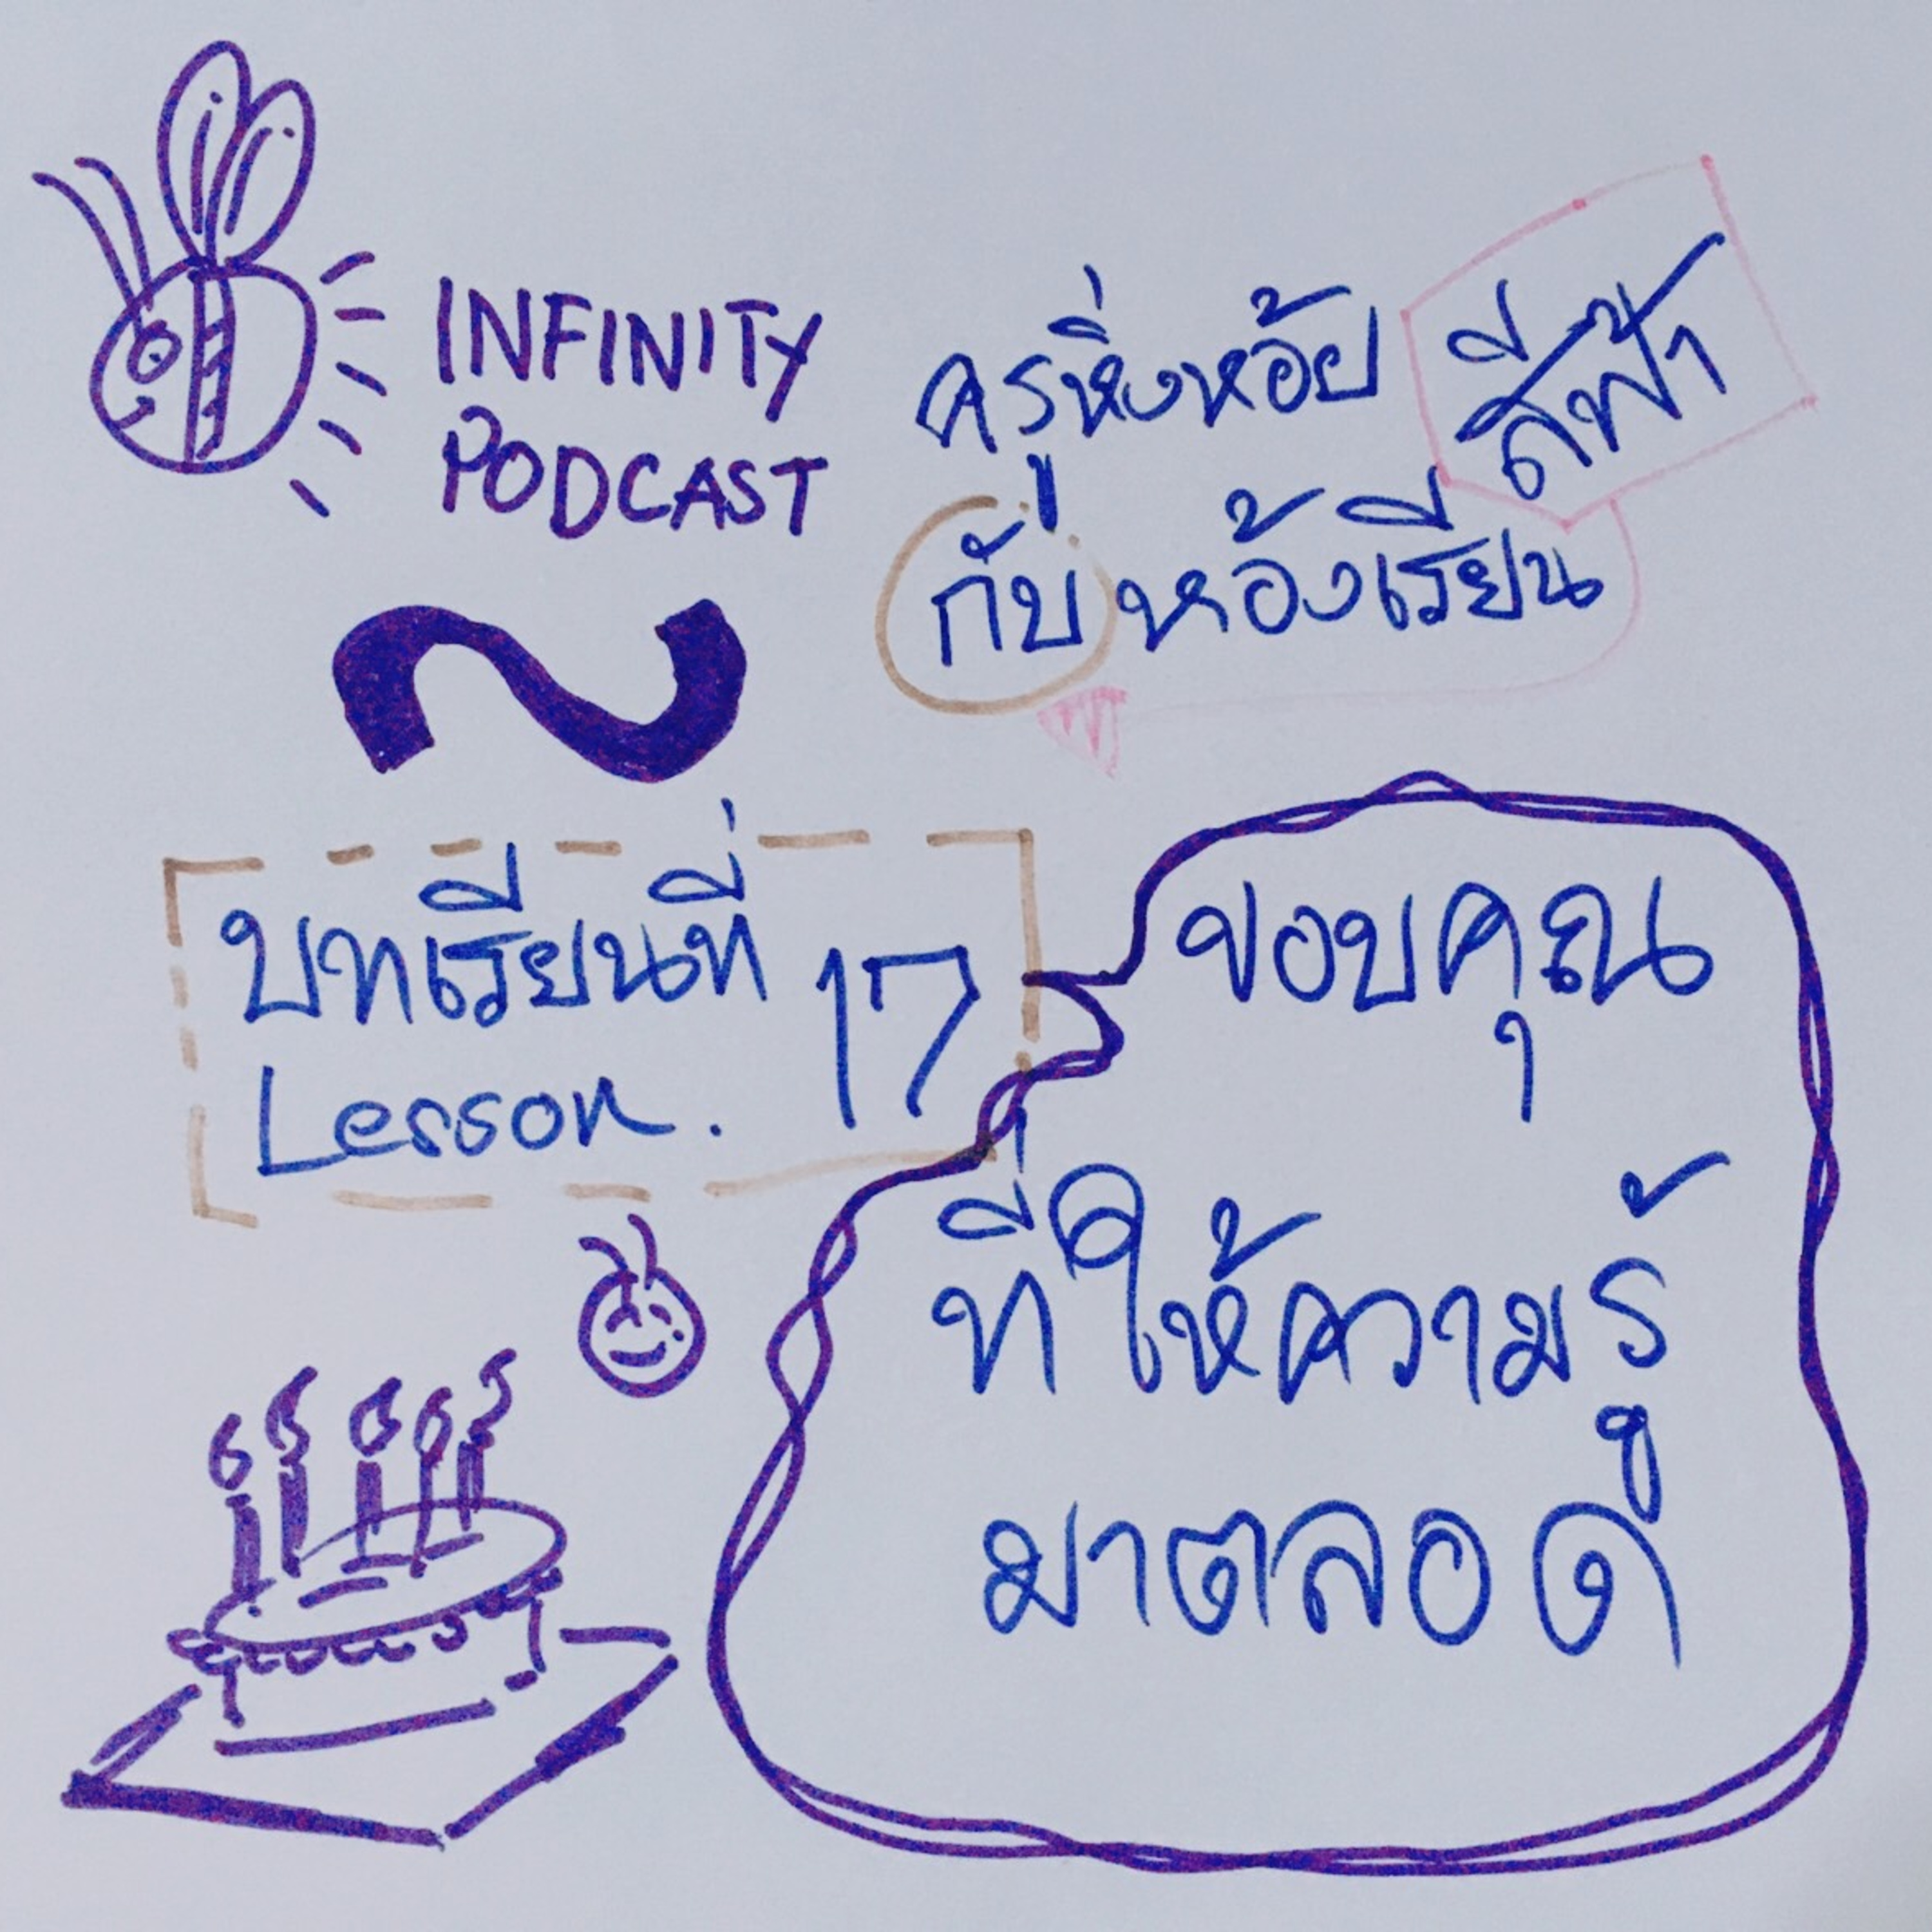 INFINITY
PODCAST
ครูหิ่งห้อย สีฟ้า
กับห้องเรียน
บทเรียนที่ 17
Lesson.
ขอบคุณ
ที่ให้ความรู้
มาตลอด